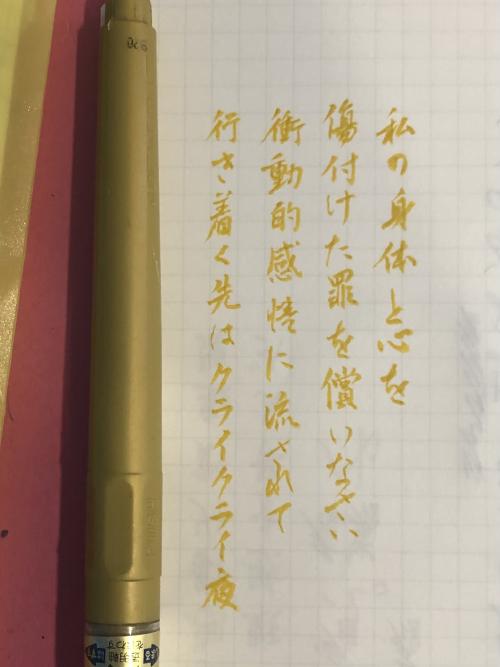 私の身体と心を
傷付けた罪を償いなさい
衝動的感情に流されて
行き着く先はクライクライ夜